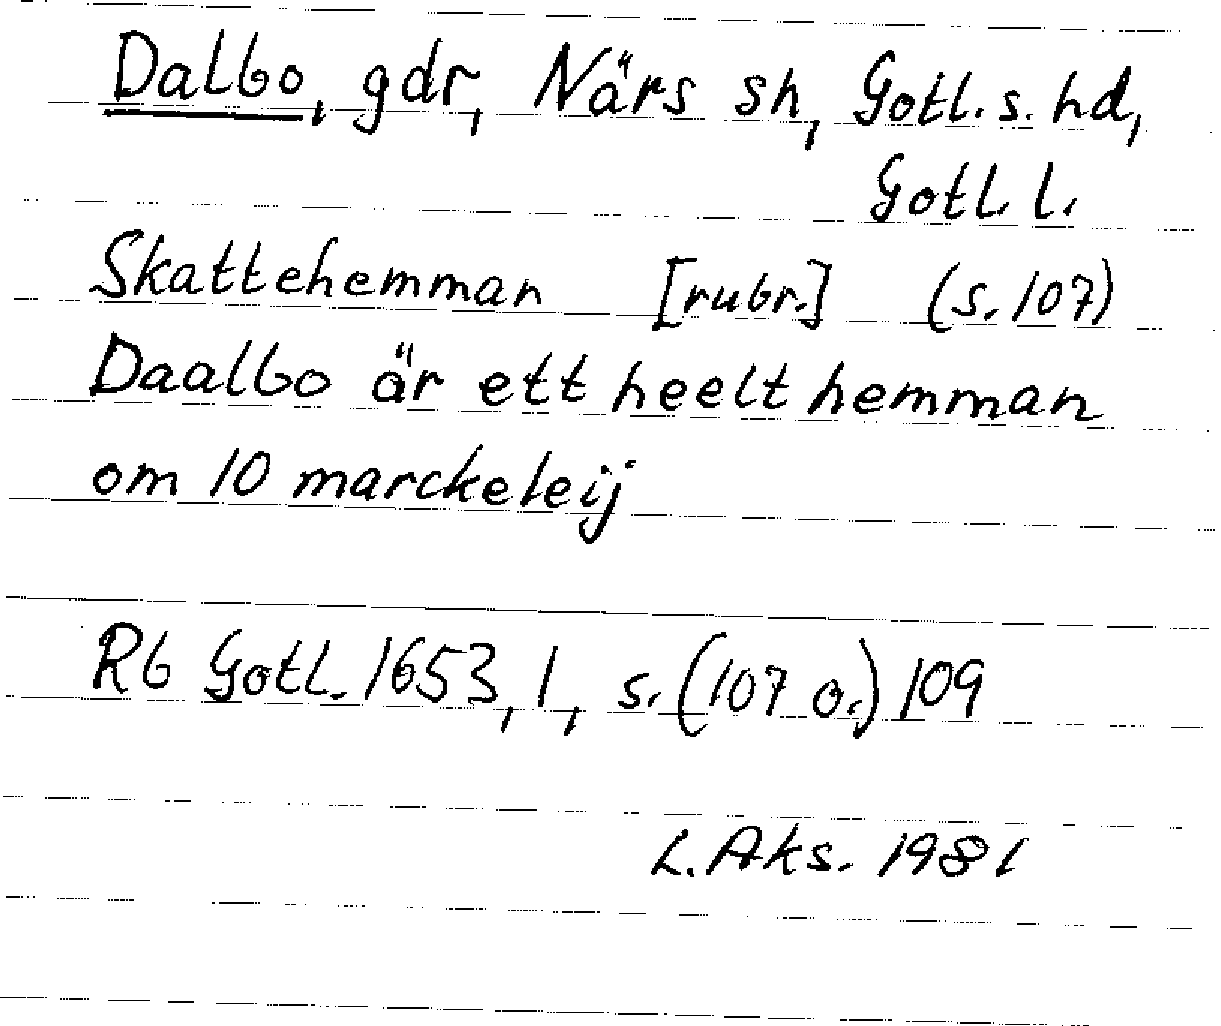 Dalbo, gdr, Närs sn, Gotl. s. hd,
Gotl. l.
Skattehemman [rubr.] (s. 107)
Daalbo är ett heelt hemman
om 10 marckeleij
Rb Gotl. 1653, 1, s. (107 o.) 109
L. Aks. 1981